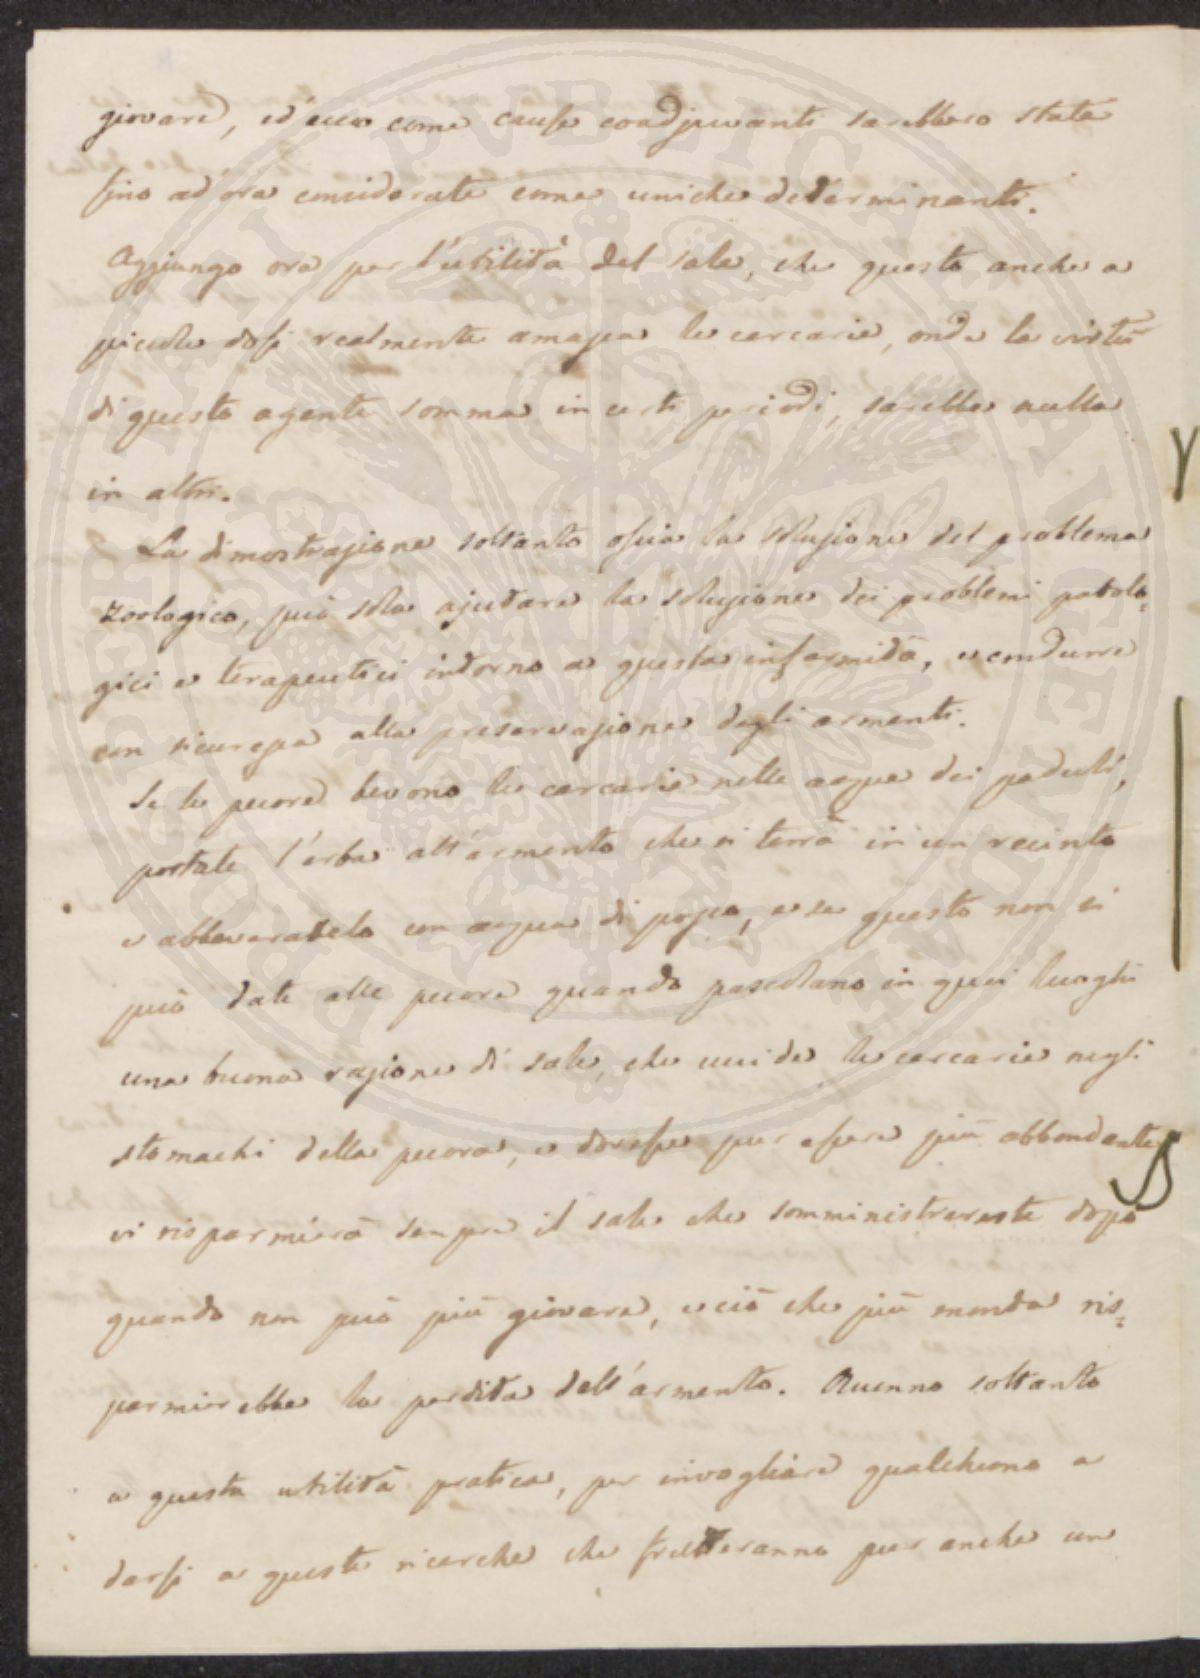 giovare, ed ecco come cause coadjuvanti sarebbero state
fino ad ora considerate come uniche determinanti.
Aggiungo ora per l'utilità del sale, che questo anche a
piccole dosi realmente amazza le cercarie, onde la virtù
di questo agente somma in certi periodi, sarebbe nulla
in altri.
La dimostrazione soltanto ossia la soluzione del problema
zoologico, può sola ajutare la soluzione dei problemi patolo=
gici e terapeutici intorno a questa infermità, e condurre
con sicurezza alla preservazione degli armenti.
Se le pecore bevono le cercarie nelle acque dei paduli,
portate l'erba all'armento che si terrà in un recinto
e abbeveratelo con acqua di pozzo, e se questo non si
può date alle pecore quando pascolano in quei luoghi
una buona razione di sale, che uccide le cercarie negli
stomachi della pecora, e dovesse pur essere più abbondante
vi risparmierà sempre il sale che somministrereste dopo
quando non può più giovare, e ciò che più monta ris=
parmierebbe la perdita dell'armento. Accenno soltanto
a questa utilità pratica, per invogliare qualcheuno a
darsi a queste ricerche che frutteranno pur anche un
PROSPERITATI PVBLICAE AVGENDAE